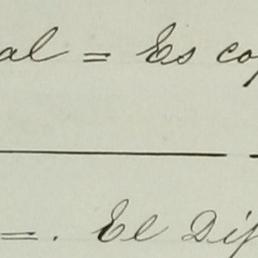 al = Es cop
=. El Dip